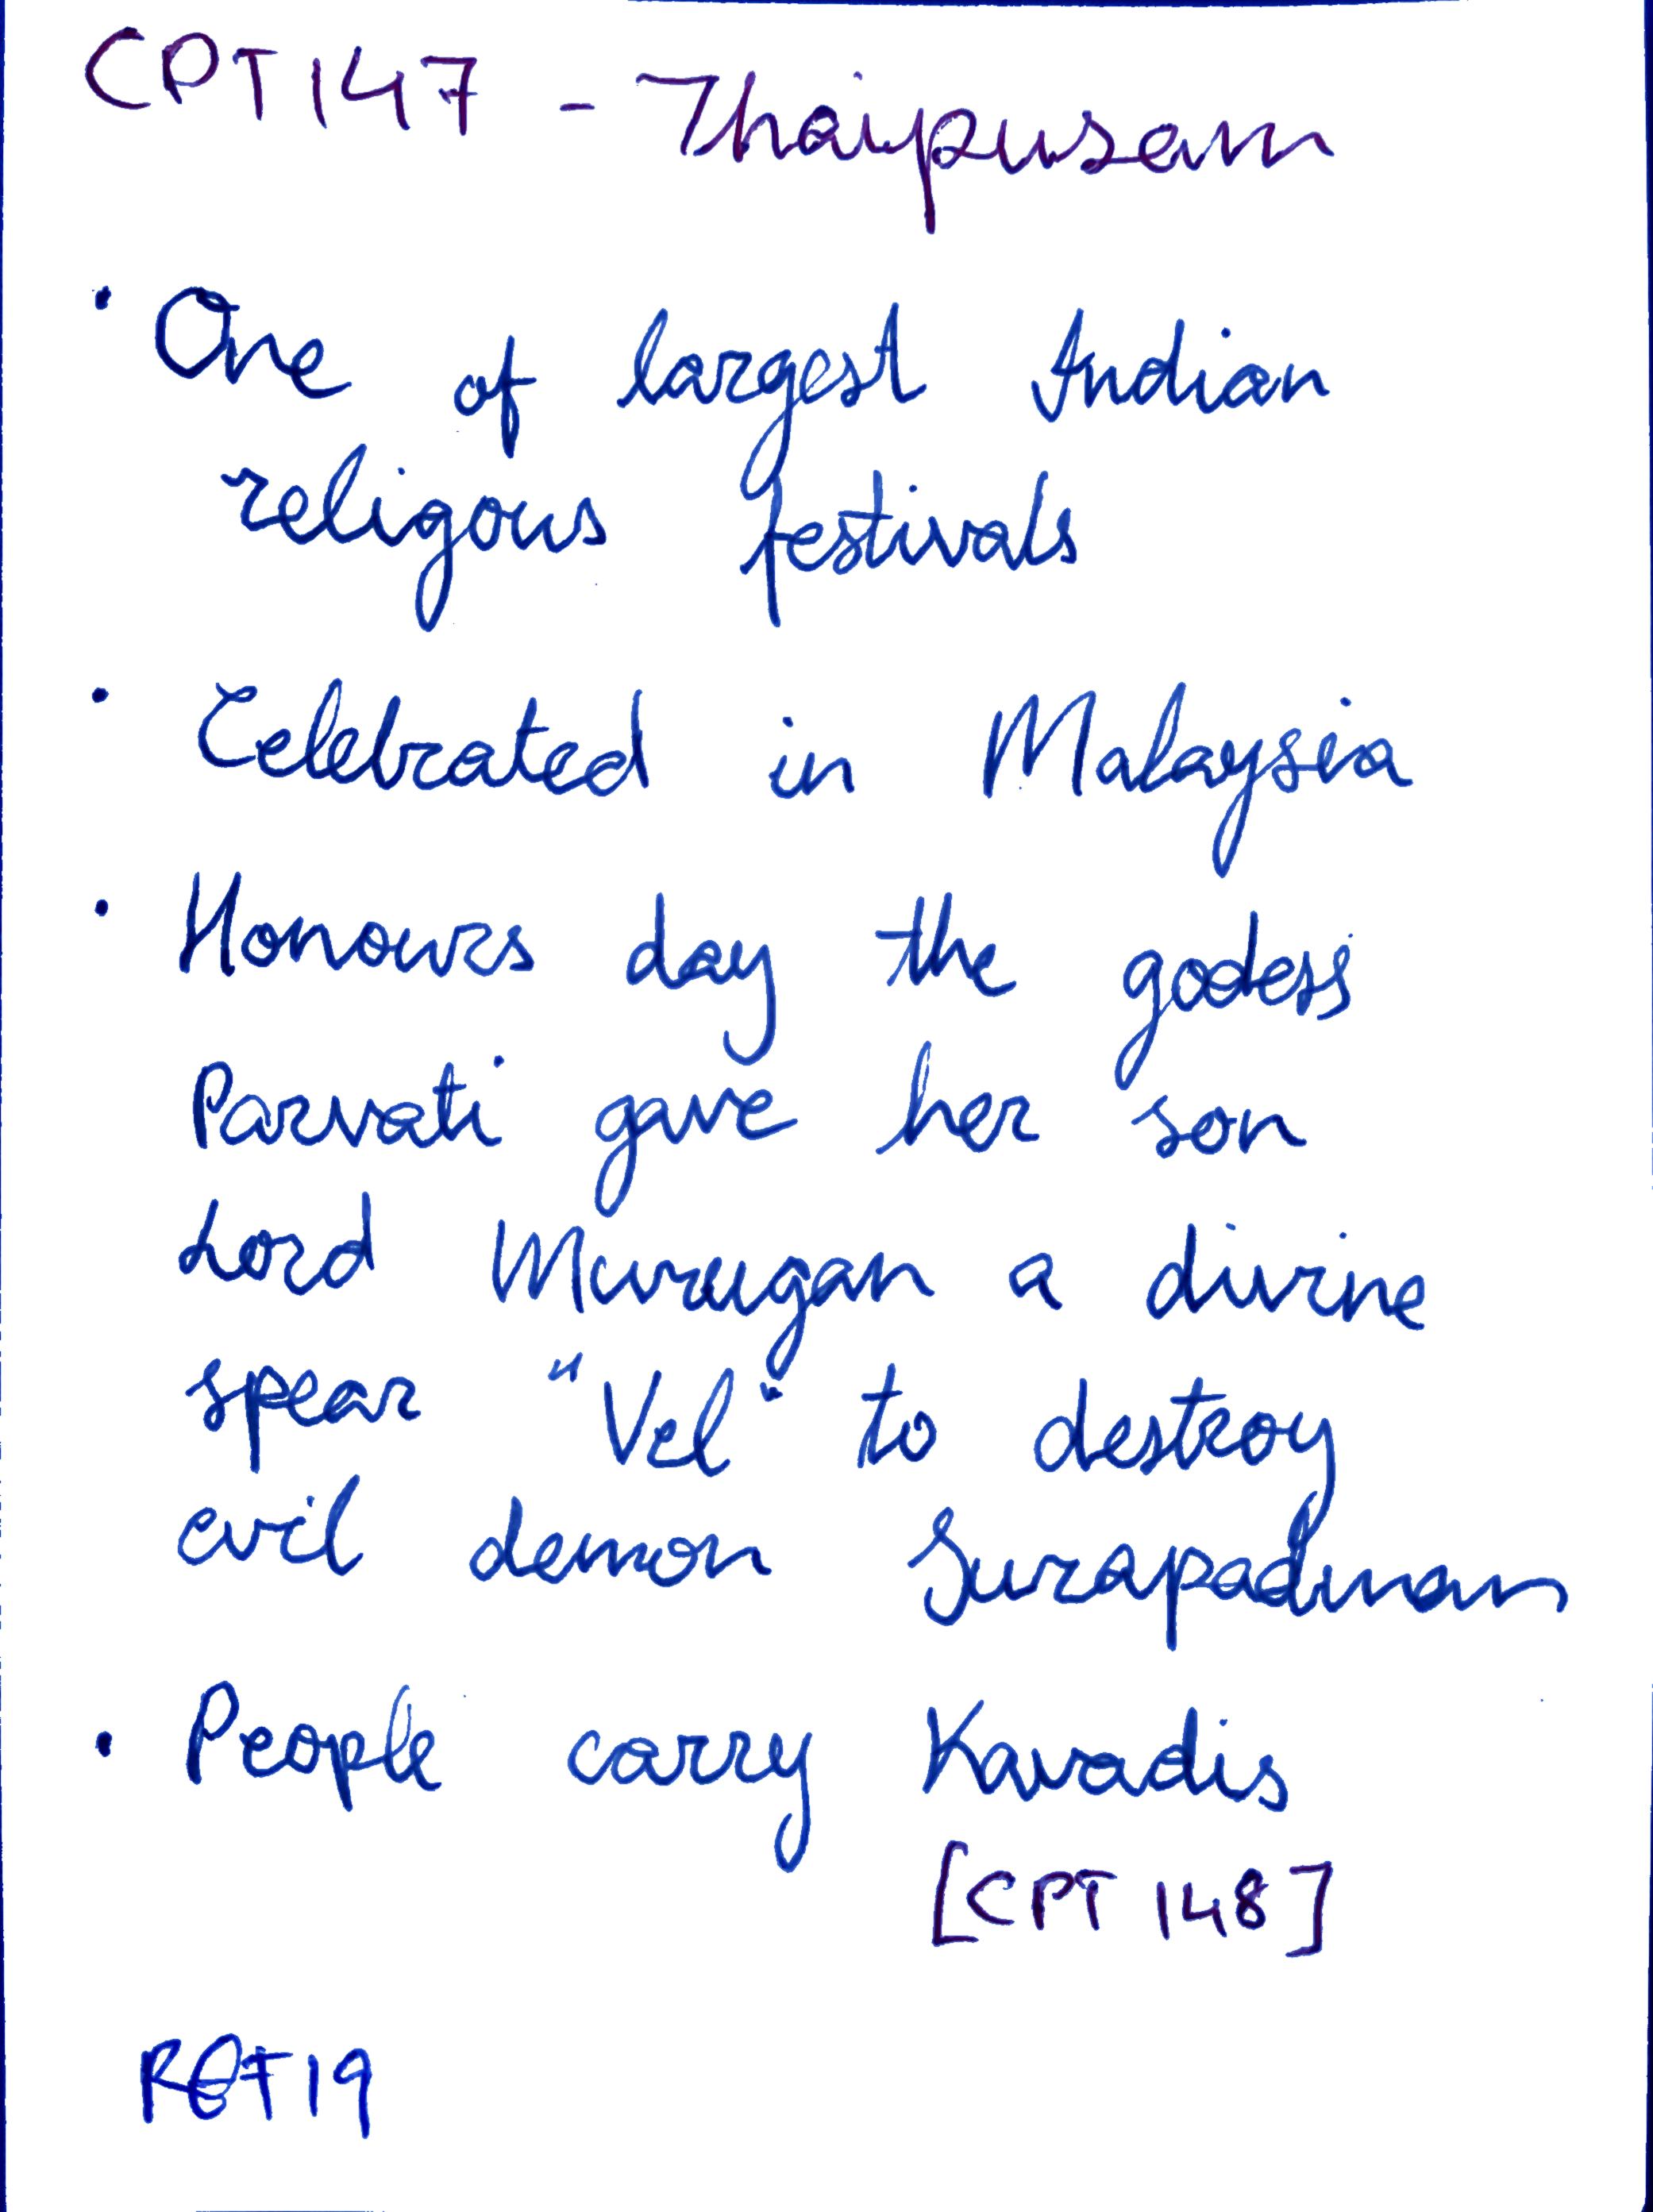 CPT147 - Thaipusam
· One of largest Indian
religous festivals
· Celebrated in Malaysia
· Honours day the godess
Parvati gave her son
Lord Murugan a divine
spear "Vel" to destroy
evil demon Surapadman
· People carry Kavadis
[CPT 148]
REF19